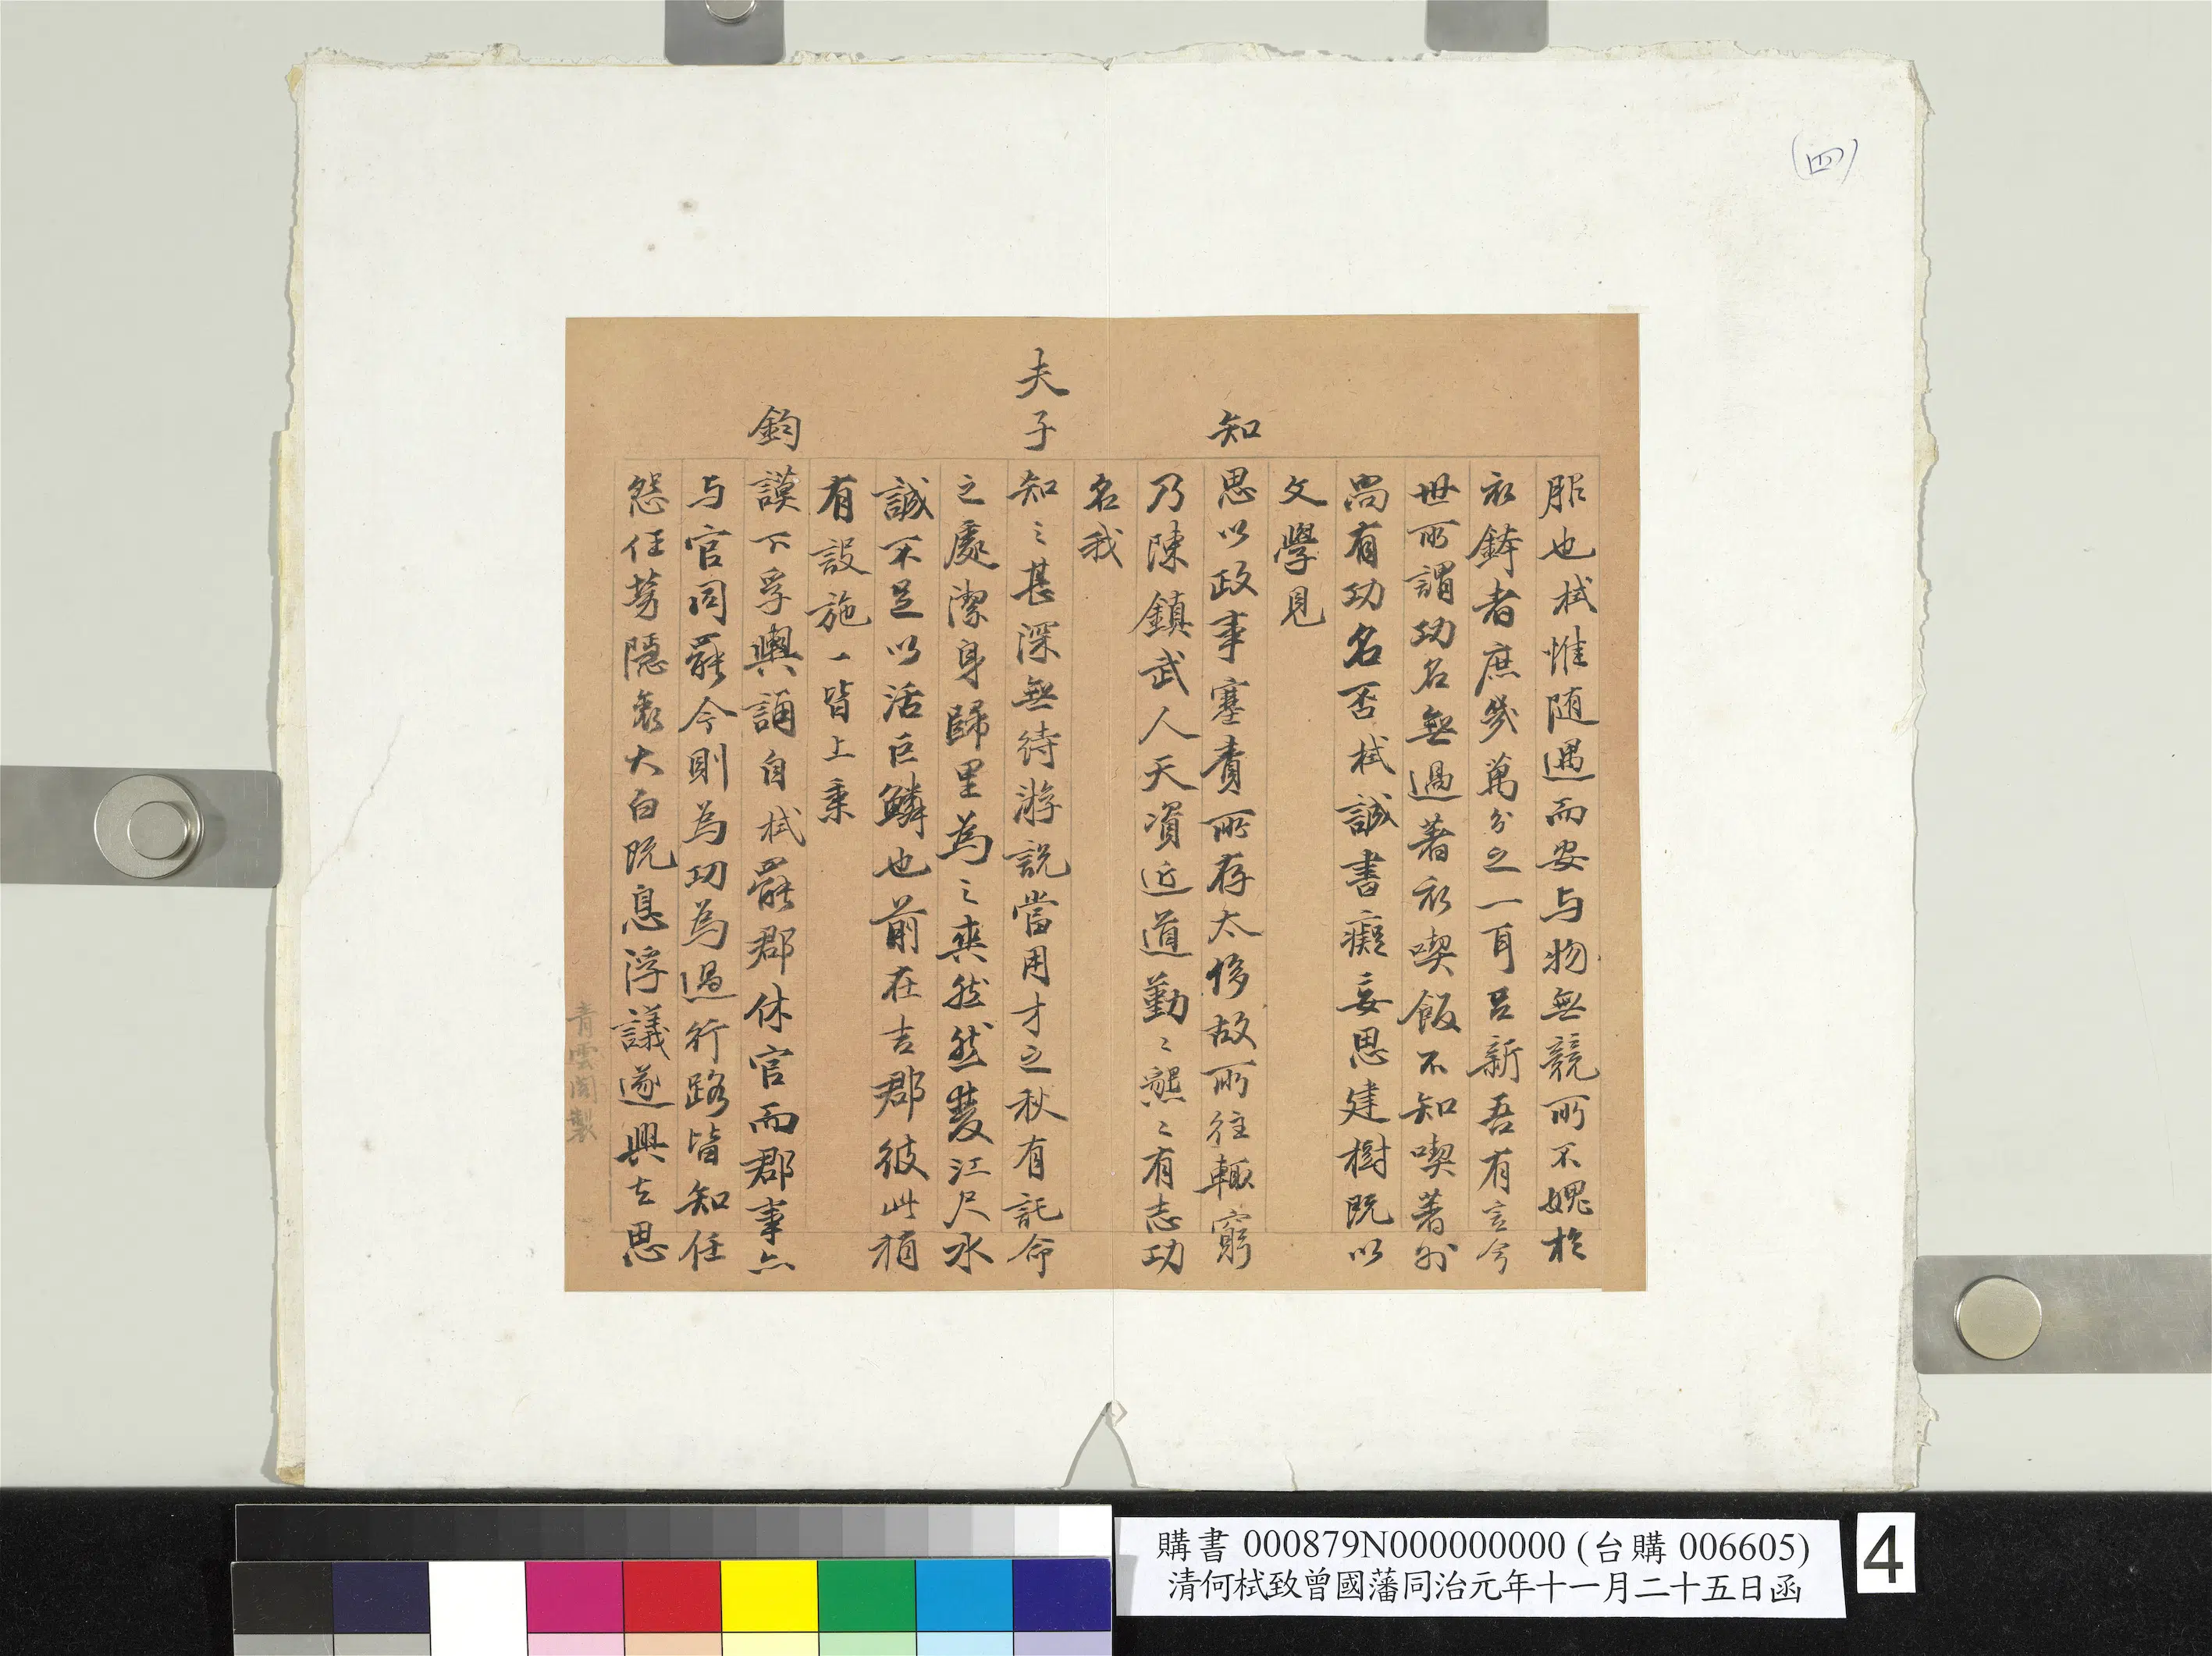 (四)
服也栻惟随遇而安与物無競所不媿於
衣鉢者庶幾萬分之一耳吕新吾有言今
世所謂功名無過著衣喫飯不知喫著外
尚有功名否栻誠書癡妄思建樹既以
文學見
知思以政事塞責所存太侈故所往輒窮
乃陳鎮武人天資近道勤〻懇〻有志功
名我
夫子知〻甚深無待游説當用才之秋有託命
之處潔身歸里為〻爽然然雙江尺水
誠不足以活巨鱗也前在吉郡彼此稍
有設施一皆上秉
鈞謨下孚輿誦自栻罷郡休官而郡事亦
与官同罷今則為功為過行路皆知任
怨任勞隱衷大白既息浮議遂興去思
青雲閣製
購書 000879N000000000 (台購 006605)
清何栻致曾國藩同治元年十一月二十五日函
4